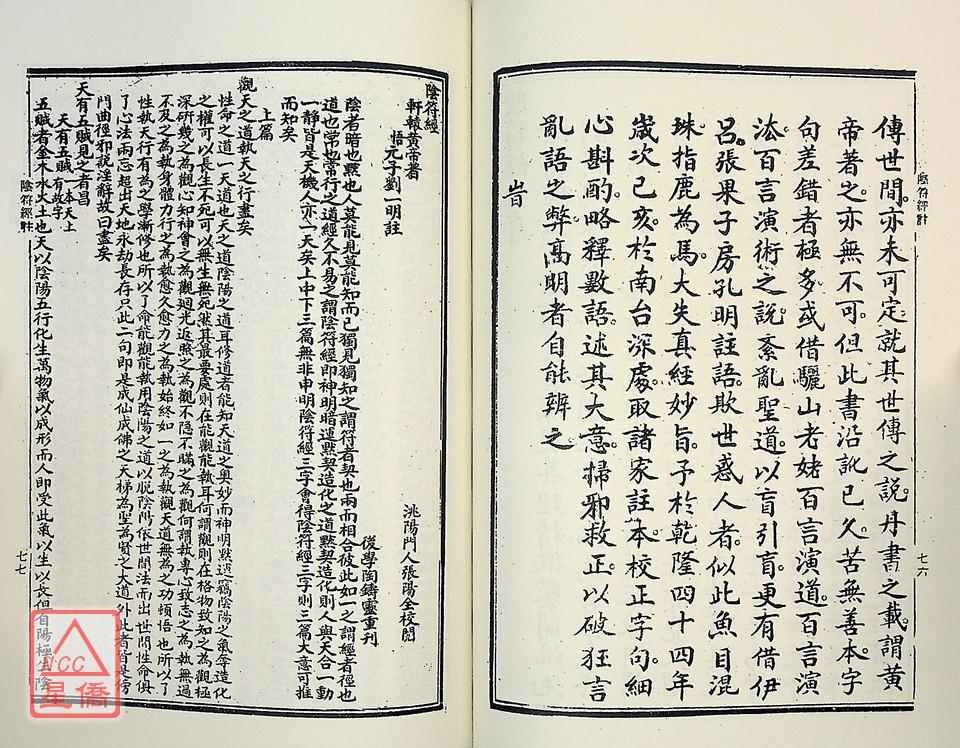 傳世間亦未可定就其世傳之說丹書之載謂黃
帝著之亦無不可但此書沿訛已久苦無善本字
句差錯者極多或借驪山老姥百言演道百言演
法百言演術之說紊亂聖道以盲引盲更有借伊
呂張果子房孔明註語欺世惑人者似此魚目混
珠指鹿為馬大失真經妙旨予於乾隆四十四年
歲次己亥於南台深處取諸家註本校正字句細
心斟酌略釋數語述其大意掃邪救正以破狂言
亂語之弊高明者自能辨之
陰符經註
七六
陰符經
軒轅黃帝著
悟元子劉一明註
洮陽門人張陽全校閱
後學陶鑄靈重刊
陰者暗也默也人莫能見莫能知而己獨見獨知之謂符者契也兩而相合彼此如一之謂經者徑也
道也常也常行之道經久不易之謂陰符經即神明暗運默契造化之道默契造化則人與天合一動
一靜皆是天機人亦一天矣上中下三篇無非申明陰符經三字會得陰符經三字則三篇大意可推
而知矣
上篇
觀天之道執天之行盡矣
性命之道一天道也天之道陰陽之道耳修道者能知天道之奧妙而神明默運竊陰陽之氣奪造化
之權可以長生不死可以無生無死然其最要處則在能觀能執耳何謂觀則在格物致知之為觀極
深研幾之為觀心知神會之為觀迴光返照之為觀不隱不瞞之為觀何謂執專心致志之為執無過
不及之為執身體力行之為執愈久愈力之為執始終如一之為執觀天道無為之功頓悟也所以了
性執天行有為之學漸修也所以了命能觀能執用陰陽之道以脫陰陽依世間法而出世間性命俱
了心法兩忘超出天地永劫長存只此二句即是成仙成佛之天梯為聖為賢之大道外此者皆是傍
門曲徑邪說淫辭故曰盡矣
天有五賊見之者昌
天有五賊
五賊者金木水火土也天以陰陽五行化生萬物氣以成形而人即受此氣以生以長但自陽極生陰
陰符經註
七七
NCC
星僑